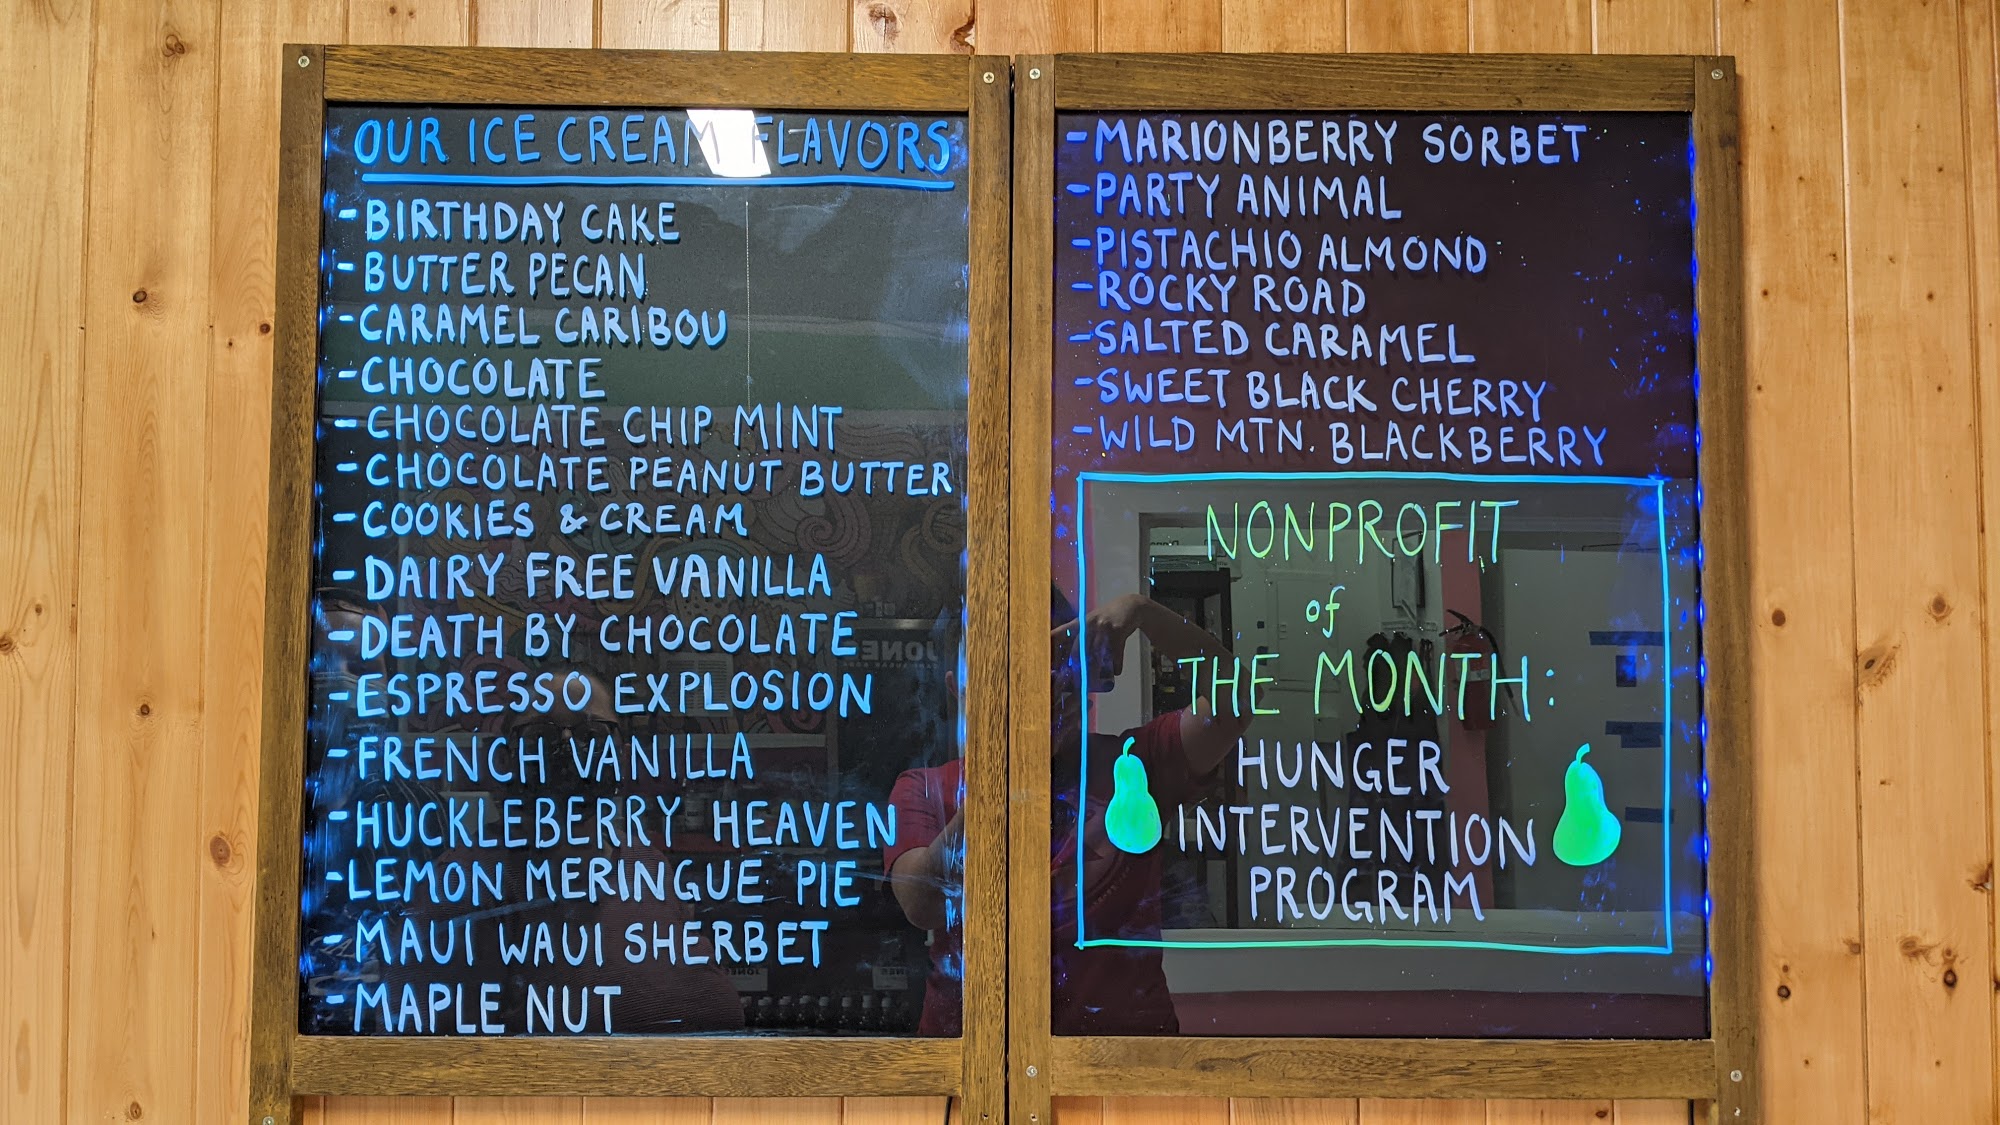 OUR ICE CREAM FLAVORS
-BIRTHDAY CAKE
-BUTTER PECAN
-CARAMEL CARIBOU
-CHOCOLATE
-CHOCOLATE CHIP MINT
-CHOCOLATE PEANUT BUTTER
-COOKIES & CREAM
-DAIRY FREE VANILLA
-DEATH BY CHOCOLATE
-ESPRESSO EXPLOSION
-FRENCH VANILLA
-HUCKLEBERRY HEAVEN
-LEMON MERINGUE PIE
-MAUI WAUI SHERBET
-MAPLE NUT
-MARIONBERRY SORBET
-PARTY ANIMAL
-PISTACHIO ALMOND
-ROCKY ROAD
-SALTED CARAMEL
-SWEET BLACK CHERRY
-WILD MTN. BLACKBERRY
NONPROFIT
of
THE MONTH:
HUNGER
INTERVENTION
PROGRAM